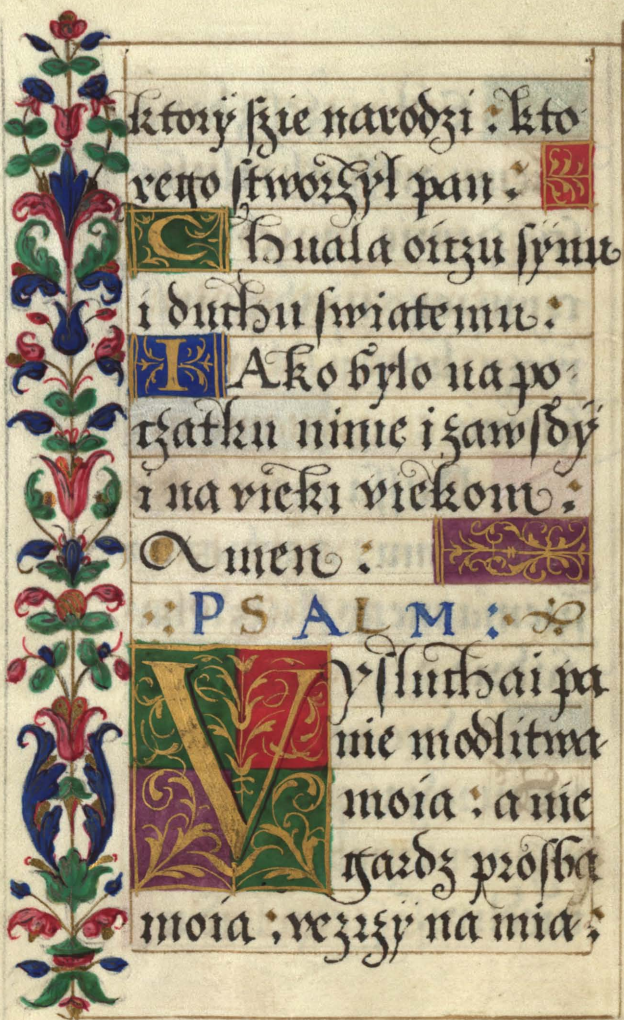 ktorÿ szie narodzi : kto
rego stworzÿl pan :
Chuala oitzu sÿnu
i duchu swiatemu :
IAko bylo na po
czatku ninie i zawsdÿ
i na vieki viekom :
Amen :
: PSALM :
Vysluchai pa
nie modlitwa
moia : a nie
gardz prosba
moia : vezrzÿ na mia :